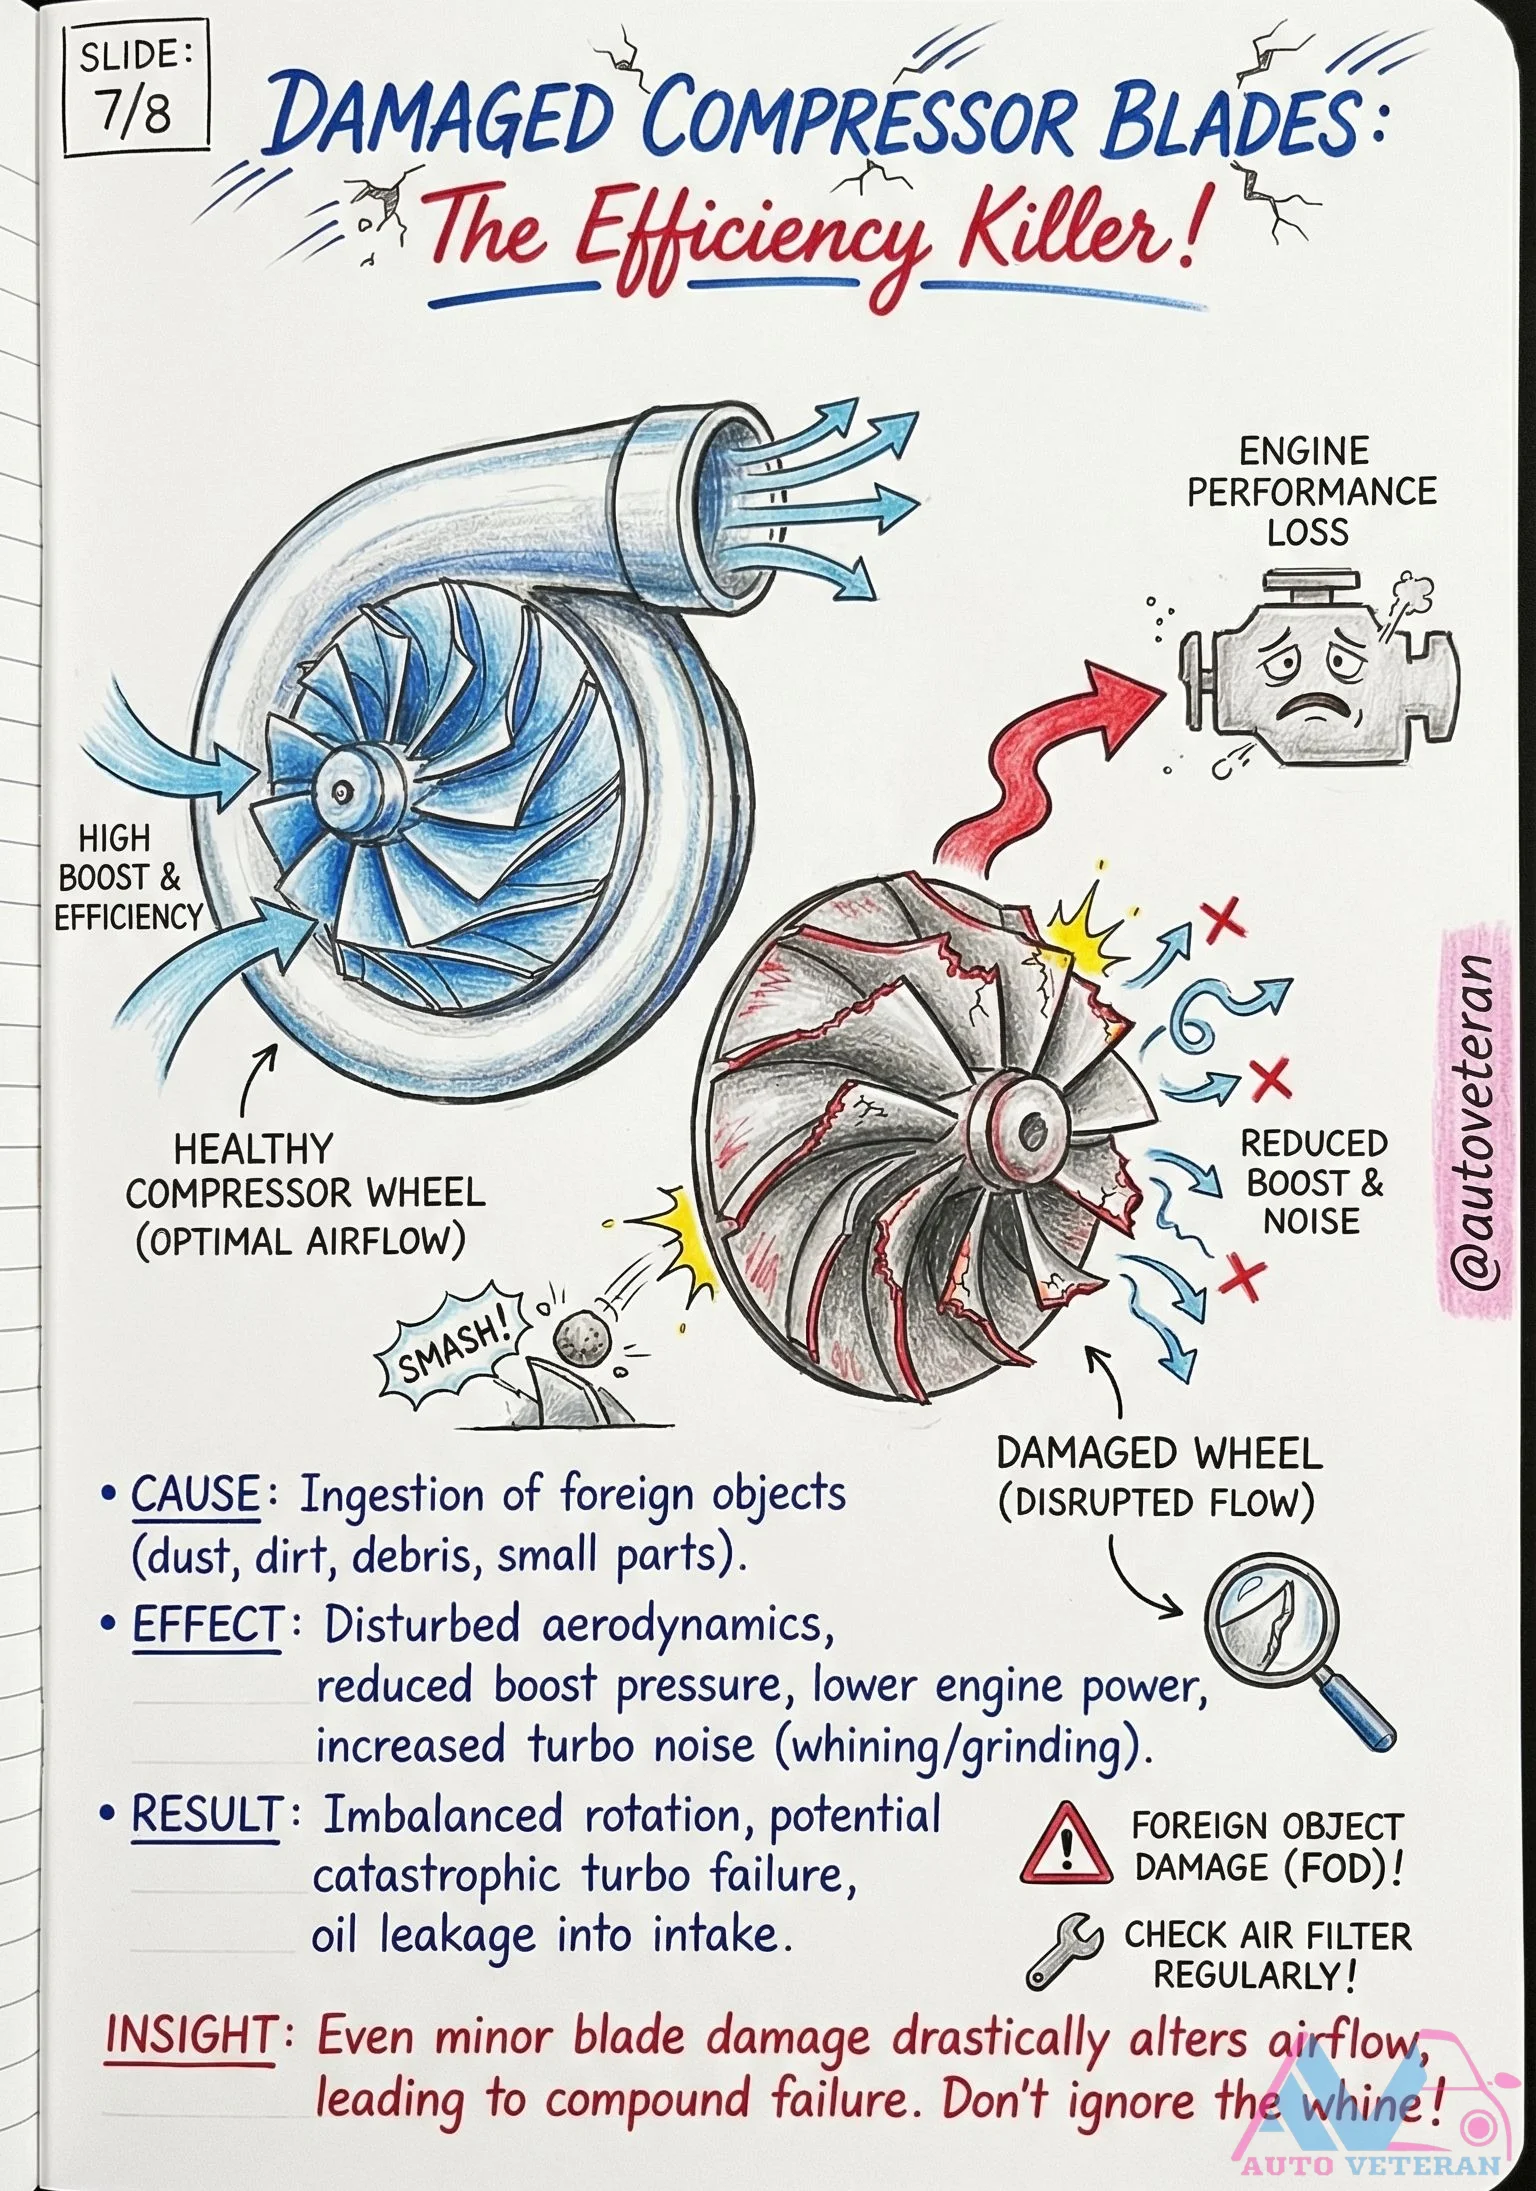 SLIDE:
7/8
DAMAGED COMPRESSOR BLADES:
The Efficiency Killer!
ENGINE
PERFORMANCE
LOSS
HIGH
BOOST &
EFFICIENCY
HEALTHY
COMPRESSOR WHEEL
(OPTIMAL AIRFLOW)
REDUCED
BOOST &
NOISE
@autoveteran
SMASH!
DAMAGED WHEEL
(DISRUPTED FLOW)
• CAUSE: Ingestion of foreign objects
(dust, dirt, debris, small parts).
• EFFECT: Disturbed aerodynamics,
reduced boost pressure, lower engine power,
increased turbo noise (whining/grinding).
• RESULT: Imbalanced rotation, potential
catastrophic turbo failure,
oil leakage into intake.
FOREIGN OBJECT
DAMAGE (FOD)!
CHECK AIR FILTER
REGULARLY!
INSIGHT: Even minor blade damage drastically alters airflow,
leading to compound failure. Don't ignore the whine!
AV
AUTO VETERAN